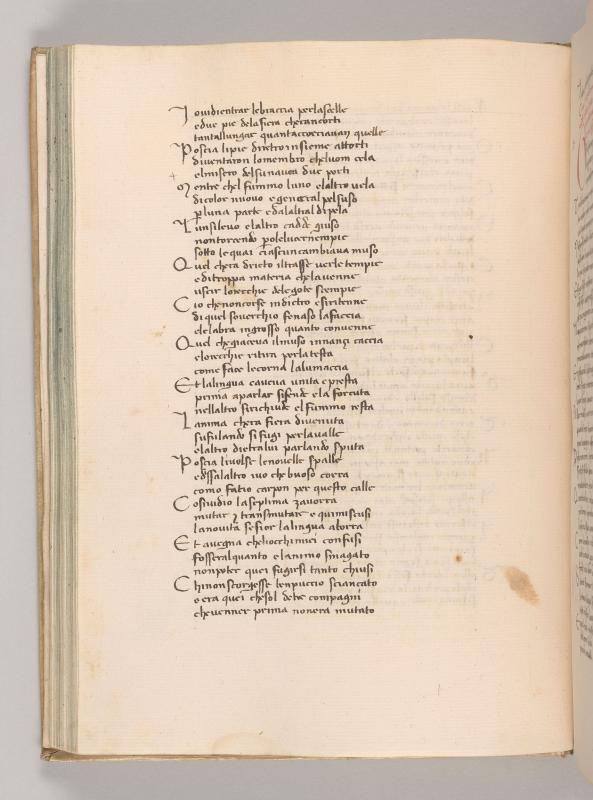 I ouidi entrar lebraccia perlascelle
edue pie dela fiera cheran corti
tantallungar quantaccorciauan quelle
Poscia lipie dirietro insieme attorti
diuentaron lomembro chelhuom cela
elmisero delsu nauea due porti
Mentre chel fummo luno elaltro uela
dicolor nuouo e general pelsuso
per luna parte edalaltra il dipela
Lun si leuo elaltro cadde giuso
non torcendo pero lelucerne empie
sotto lequai ciascun cambiaua muso
Quel chera dricto iltrasse uer le tempie
edi troppa materia chela uenne
uscir lorecchie dele gote scempie
Cio che non corse indietro e siritenne
di quel souerchio fe naso alafaccia
ele labra ingrosso quanto conuenne
Quel che giaceua ilmuso innanzi caccia
elorecchie ritira per la testa
come face le corna la lumaccia
Et lalingua cauea unita e presta
prima a parlar si fende e la forcuta
nellaltro si richiude el fummo resta
Lanima chera fiera diuenuta
sufulando si fugi per la ualle
elaltro dietro lui parlando sputa
Poscia liuolse le nouelle spalle
edissalaltro iuo che buoso corra
como fatio carpon per questo calle
Cosi uidio la septima zauorra
mutar &amp; transmutare e qui mi scusi
la nouita se fior la lingua aborra
Et auegna che liocchi miei confusi
fosser alquanto e lanimo smagato
non poter quei fugirsi tanto chiusi
Chi non scorgesse ben puccio sciancato
e era quei che sol de tre compagni
che uenner prima non era mutato